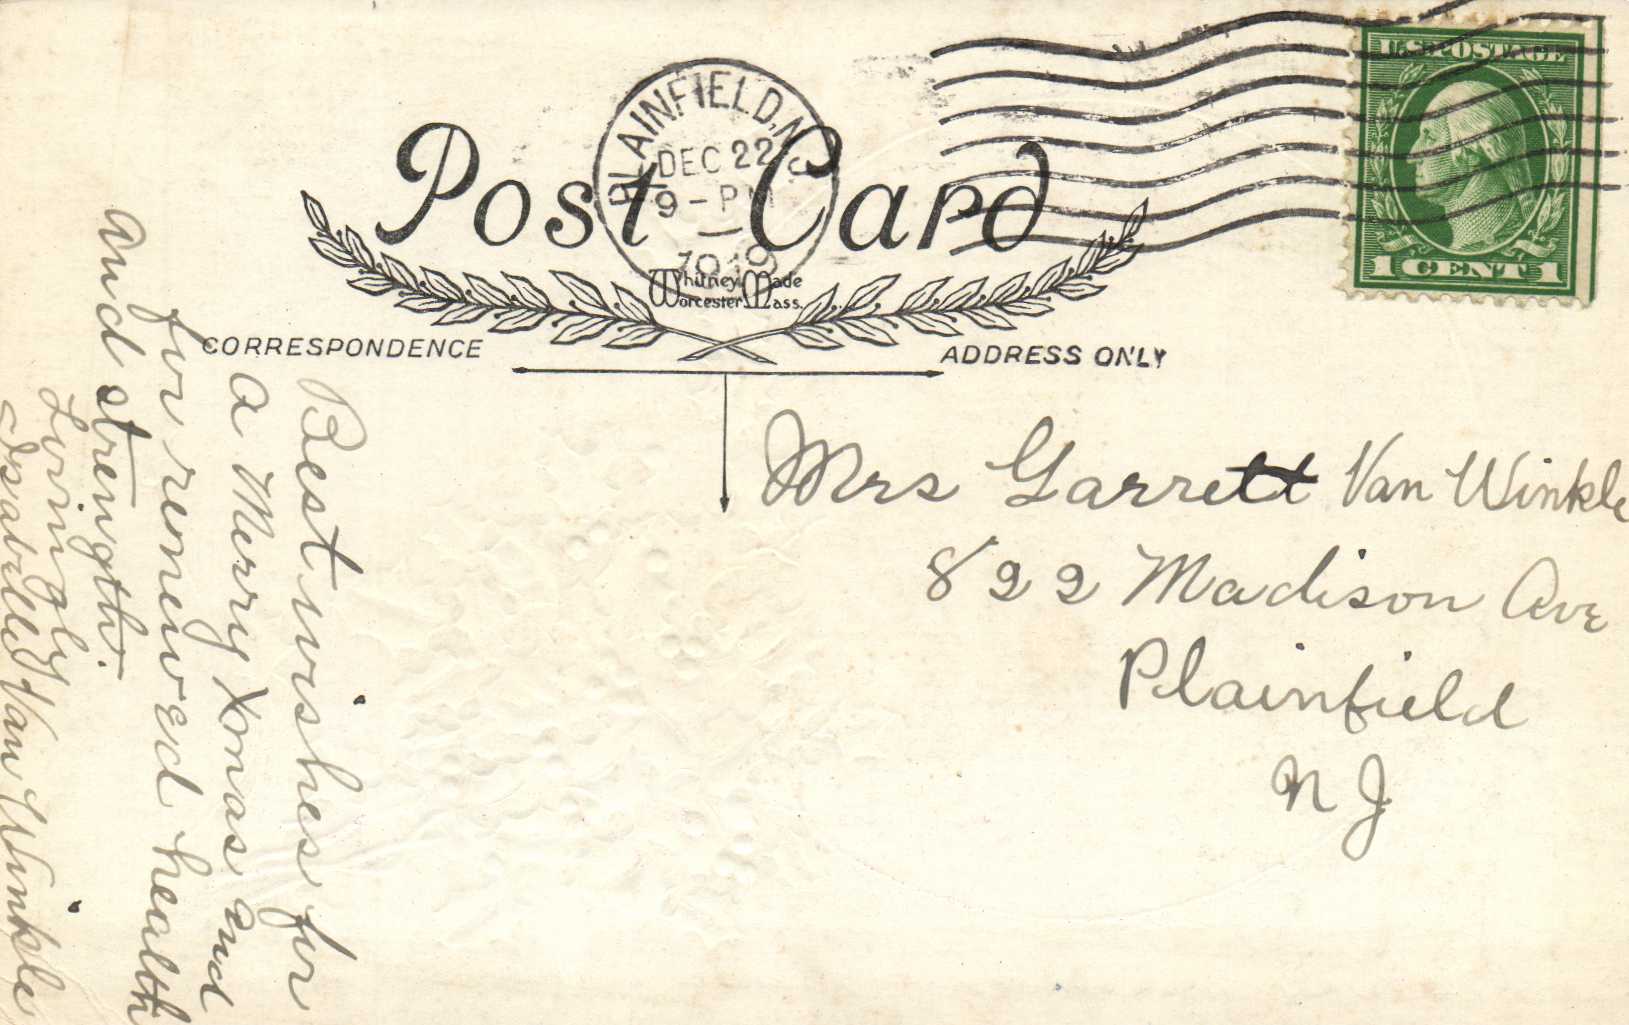 U.S. POSTAGE
1 CENT 1
PLAINFIELD, N.J.
DEC 22
9 - PM
1919
Post Card
Whitney Made
Worcester Mass.
CORRESPONDENCE
ADDRESS ONLY
Best wishes for
a Merry Xmas and
for renewed health
and strength.
Lovingly
Isabelle Van Winkle
Mrs Garrett Van Winkle
822 Madison Ave
Plainfield
N J